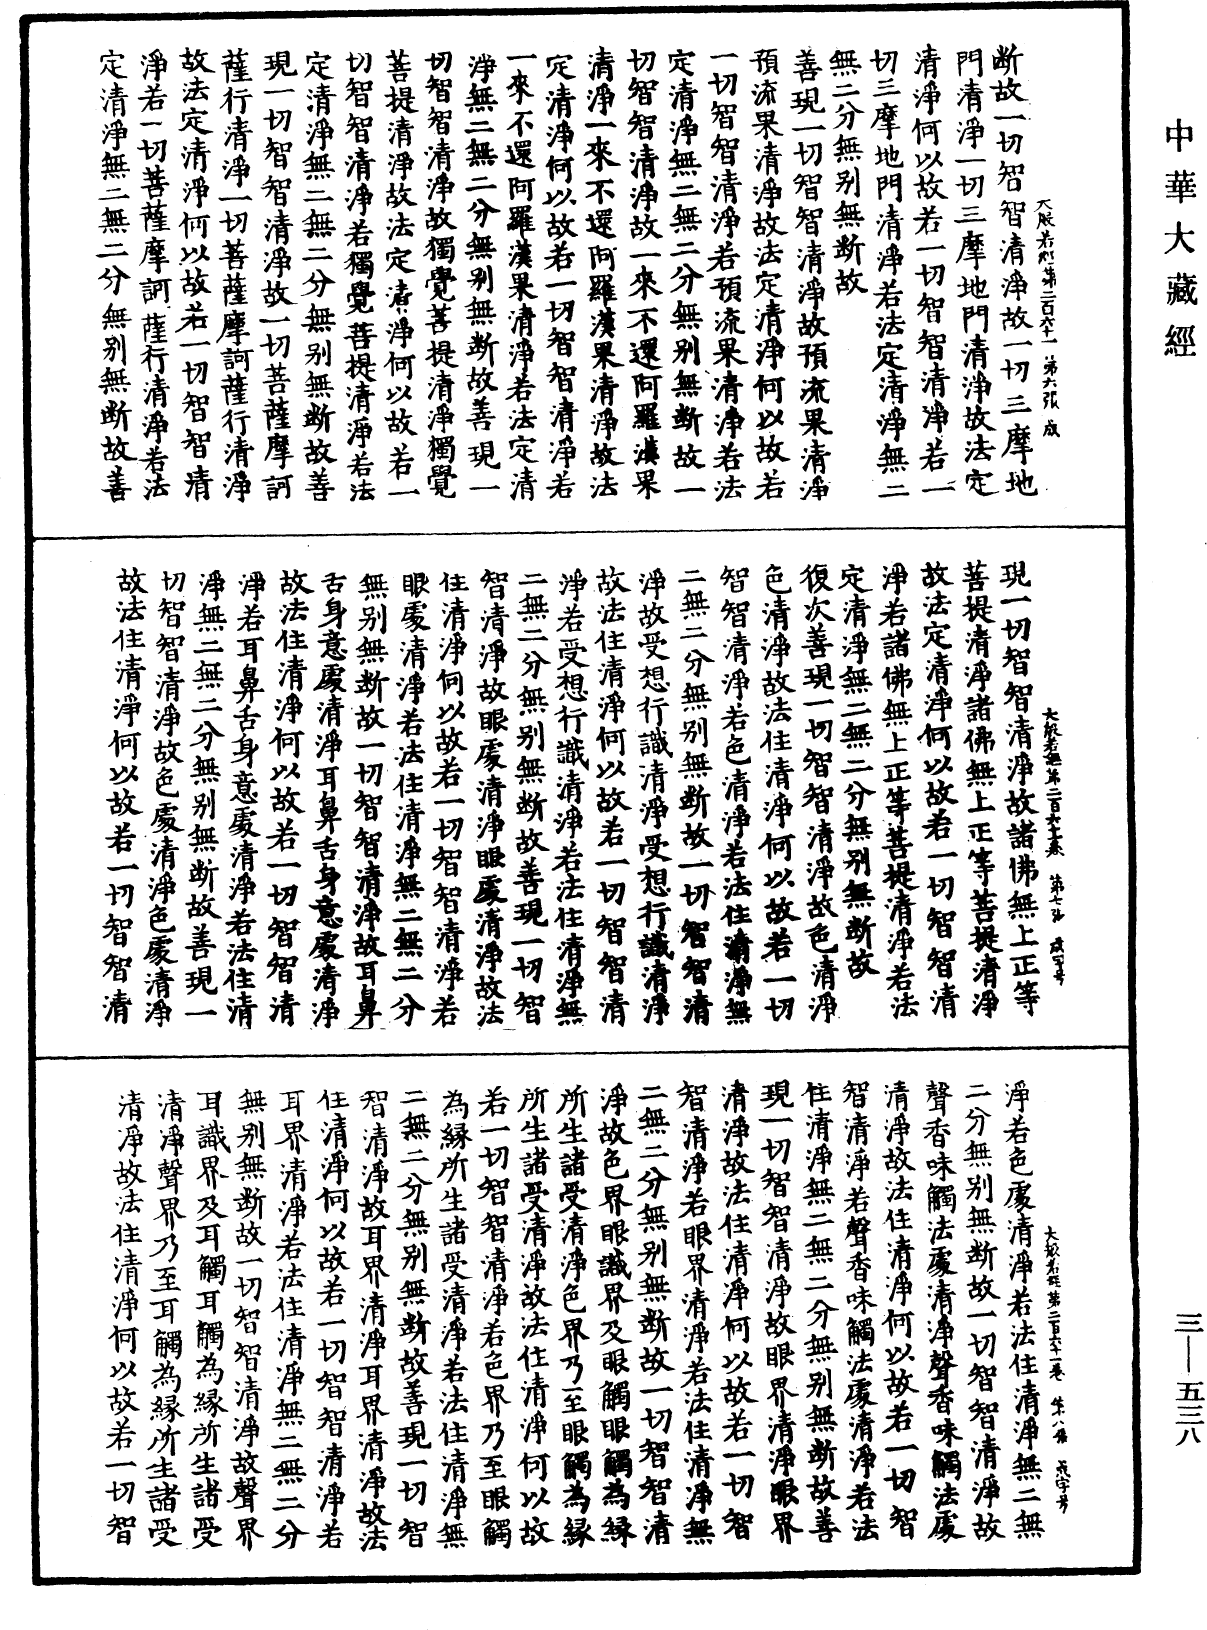 中華大藏經
大般若經第二百六十一 第六張 咸
断故一切智智清淨故一切三摩地
門清淨一切三摩地門清淨故法定
清淨何以故若一切智智清淨若一
切三摩地門清淨若法定清淨無二
無二分無别無断故
善現一切智智清淨故預流果清淨
預流果清淨故法定清淨何以故若
一切智智清淨若預流果清淨若法
定清淨無二無二分無别無断故一
切智智清淨故一來不還阿羅漢果
清淨一來不還阿羅漢果清淨故法
定清淨何以故若一切智智清淨若
一來不還阿羅漢果清淨若法定清
淨無二無二分無别無断故善現一
切智智清淨故獨覺菩提清淨獨覺
菩提清淨故法定清淨何以故若一
切智智清淨若獨覺菩提清淨若法
定清淨無二無二分無别無断故善
現一切智智清淨故一切菩薩摩訶
薩行清淨一切菩薩摩訶薩行清淨
故法定清淨何以故若一切智智清
淨若一切菩薩摩訶薩行清淨若法
定清淨無二無二分無别無断故善
大般若經第二百六十一卷 第七張 咸字号
現一切智智清淨故諸佛無上正等
菩提清淨諸佛無上正等菩提清淨
故法定清淨何以故若一切智智清
淨若諸佛無上正等菩提清淨若法
定清淨無二無二分無别無断故
復次善現一切智智清淨故色清淨
色清淨故法住清淨何以故若一切
智智清淨若色清淨若法住清淨無
二無二分無别無断故一切智智清
淨故受想行識清淨受想行識清淨
故法住清淨何以故若一切智智清
淨若受想行識清淨若法住清淨無
二無二分無别無断故善現一切智
智清淨故眼處清淨眼處清淨故法
住清淨何以故若一切智智清淨若
眼處清淨若法住清淨無二無二分
無别無断故一切智智清淨故耳鼻
舌身意處清淨耳鼻舌身意處清淨
故法住清淨何以故若一切智智清
淨若耳鼻舌身意處清淨若法住清
淨無二無二分無别無断故善現一
切智智清淨故色處清淨色處清淨
故法住清淨何以故若一切智智清
大般若經第二百六十一卷 第八張 咸字号
淨若色處清淨若法住清淨無二無
二分無别無断故一切智智清淨故
聲香味觸法處清淨聲香味觸法處
清淨故法住清淨何以故若一切智
智清淨若聲香味觸法處清淨若法
住清淨無二無二分無别無断故善
現一切智智清淨故眼界清淨眼界
清淨故法住清淨何以故若一切智
智清淨若眼界清淨若法住清淨無
二無二分無别無断故一切智智清
淨故色界眼識界及眼觸眼觸為緣
所生諸受清淨色界乃至眼觸為緣
所生諸受清淨故法住清淨何以故
若一切智智清淨若色界乃至眼觸
為緣所生諸受清淨若法住清淨無
二無二分無别無断故善現一切智
智清淨故耳界清淨耳界清淨故法
住清淨何以故若一切智智清淨若
耳界清淨若法住清淨無二無二分
無别無断故一切智智清淨故聲界
耳識界及耳觸耳觸為緣所生諸受
清淨聲界乃至耳觸為緣所生諸受
清淨故法住清淨何以故若一切智
三—五三八